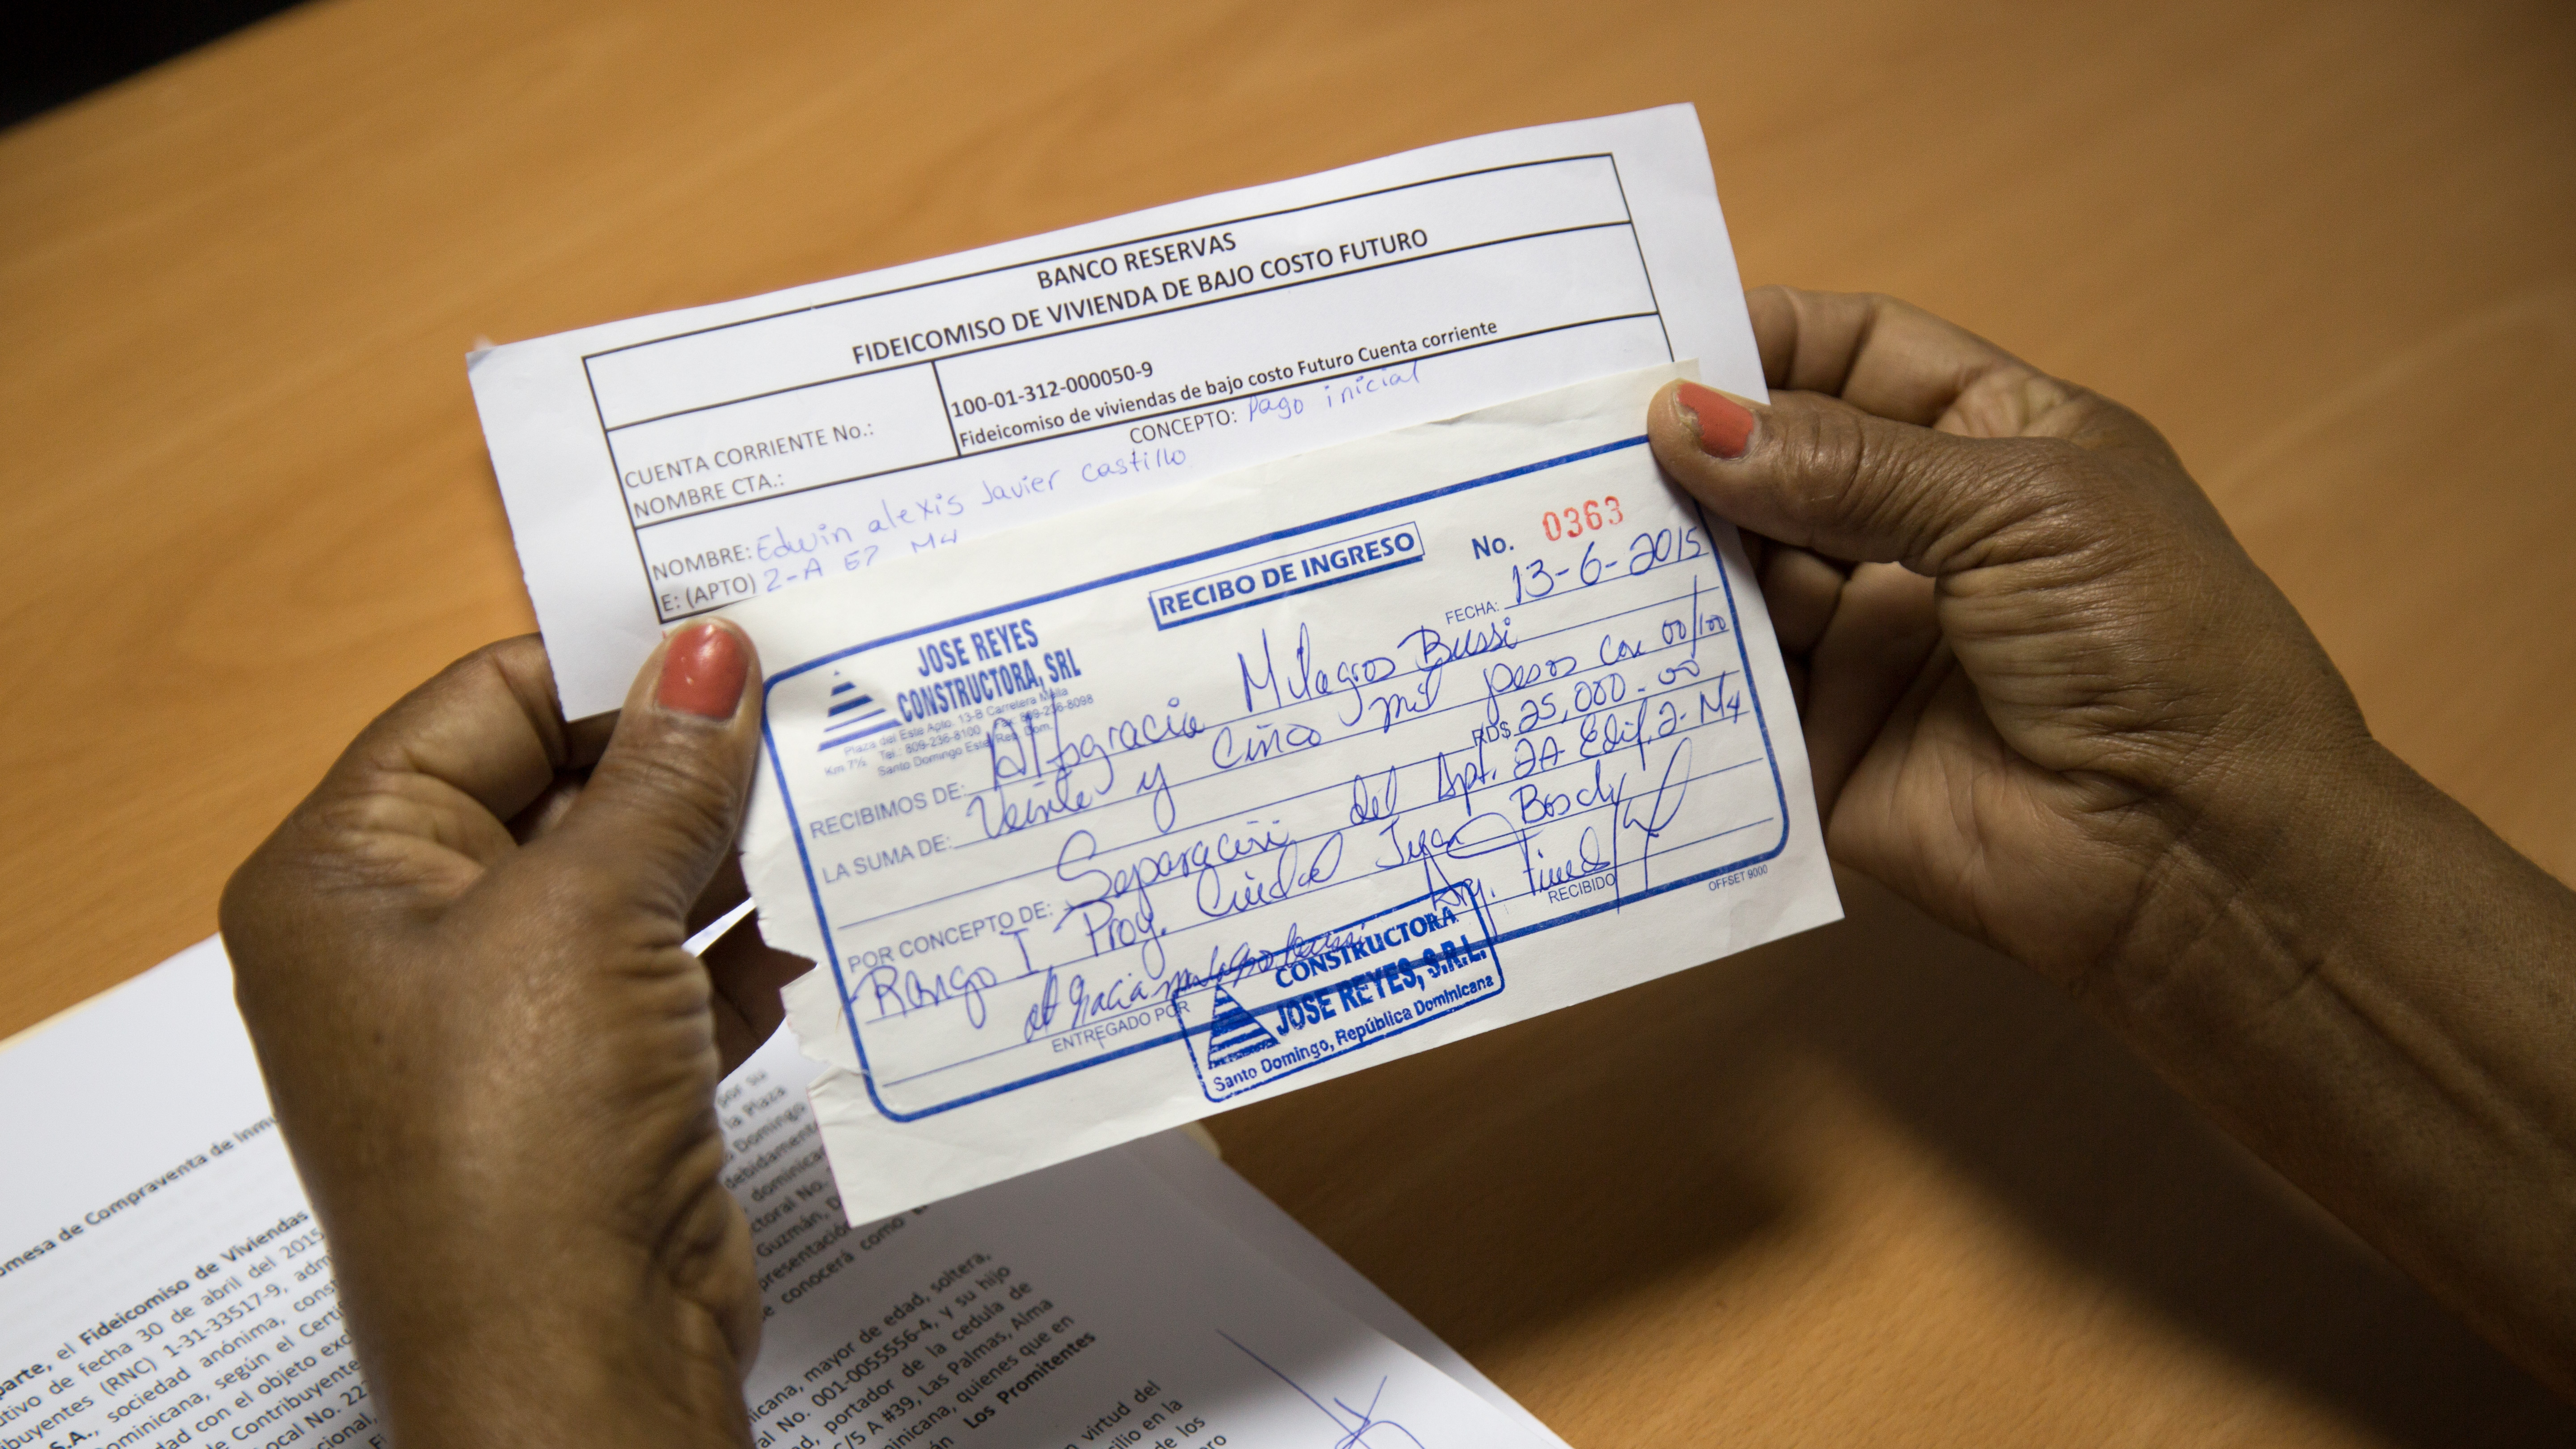 BANCO RESERVAS
FIDEICOMISO DE VIVIENDA DE BAJO COSTO FUTURO
CUENTA CORRIENTE No.: 100-01-312-000050-9
NOMBRE CTA.: Fideicomiso de viviendas de bajo costo Futuro Cuenta corriente
CONCEPTO: Pago inicial
NOMBRE: Edwin alexis Javier castillo
E: (APTO) 2-A E7 M4
JOSE REYES
CONSTRUCTORA, SRL
Plaza del Este Apto. 13-B Carretera Mella
Km 7½ Tel.: 809-236-8100 Fax: 809-236-8098
Santo Domingo Este, Rep. Dom.
RECIBO DE INGRESO
No. 0363
FECHA: 13-6-2015
RECIBIMOS DE: Altagracia Milagros Bussi
LA SUMA DE: Veinte y Cinco mil pesos con 00/100
RD$ 25,000.00
POR CONCEPTO DE: Separación del Apt. 2A Edif. 2- M4
Rango I, Proy. Ciudad Juan Bosch
ENTREGADO POR
RECIBIDO
OFFSET 9000
CONSTRUCTORA
JOSE REYES, S.R.L.
Santo Domingo, República Dominicana
omesa de Compraventa de Inmu
parte, el Fideicomiso de Viviendas
utivo de fecha 30 de abril del 2015
ibuyentes (RNC) 1-31-33517-9, adm
S.A., sociedad anónima, const
ominicana, según el Certi
dad con el objeto exc
de Contribuyente
Local No. 22
cional,
por su
la Plaza
Domingo
debidamente
dominican
ctoral No.
Guzmán, D
presentación
e conocerá como E
nicana, mayor de edad, soltera,
al No. 001-0055556-4, y su hijo
ad, portador de la cedula de
C/5 A #39, Las Palmas, Alma
minicana, quienes que en
án Los Promitentes
n virtud del
ilio en la
de los
ro